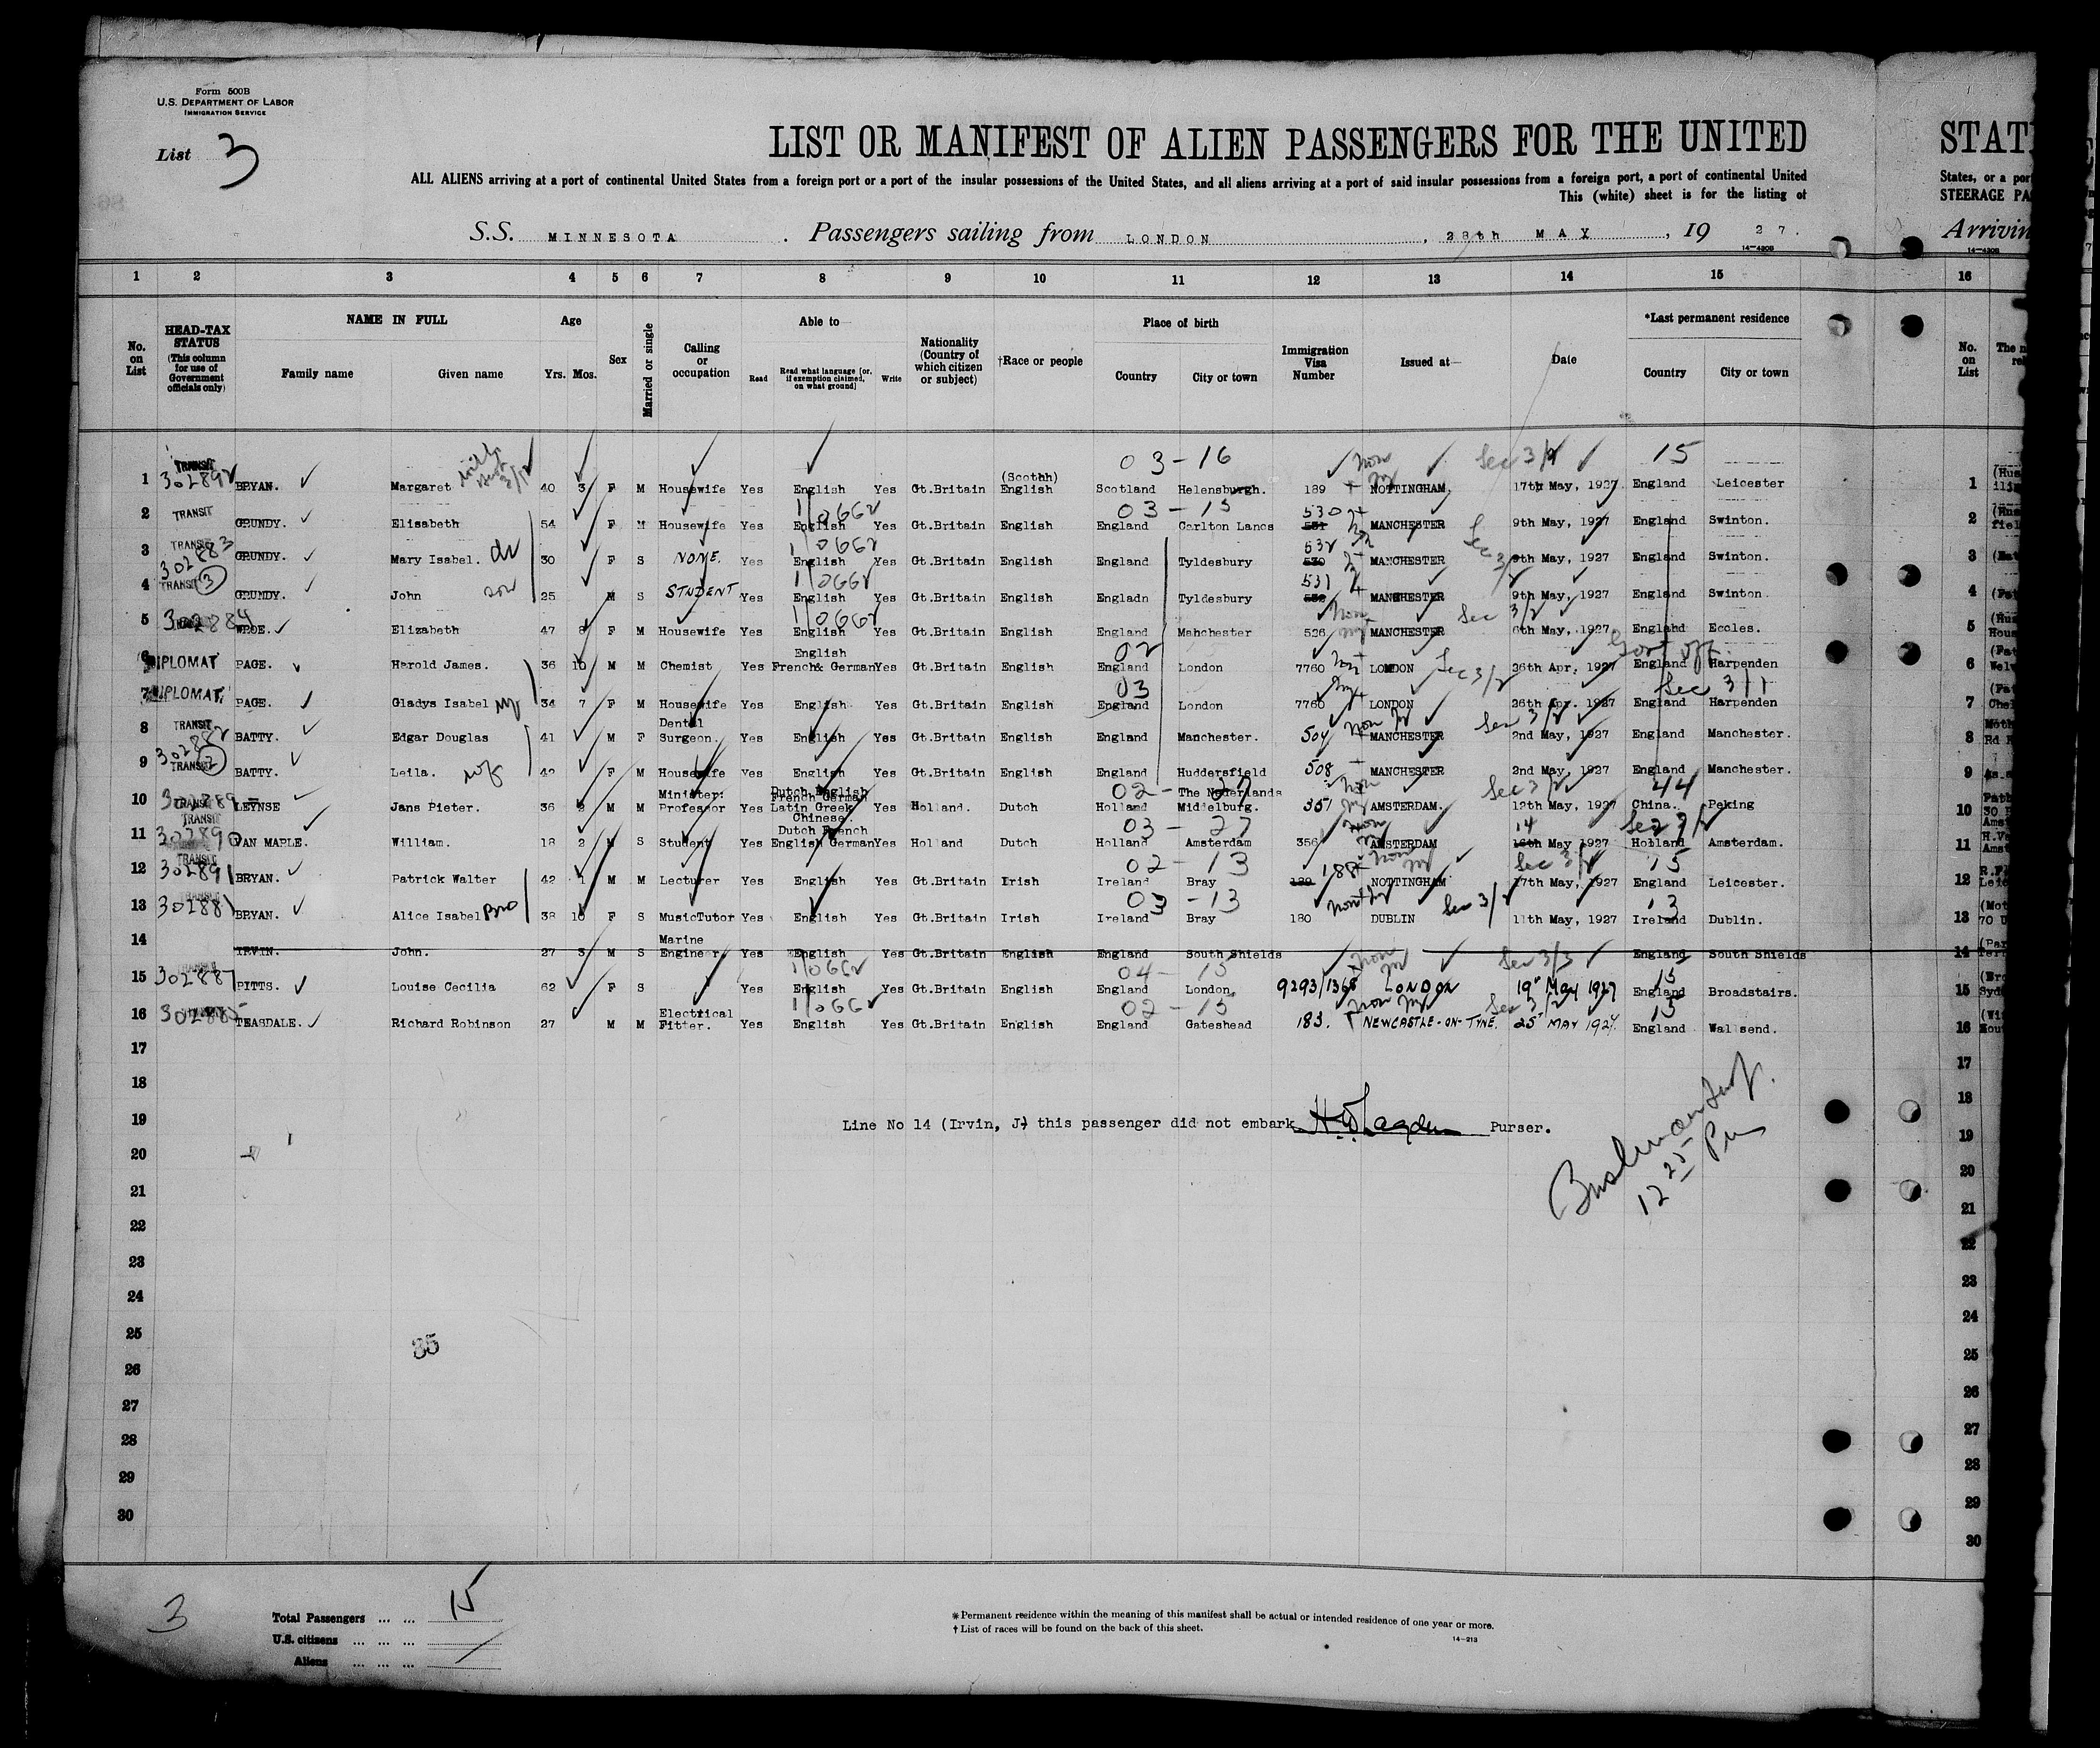 Form 500B
U.S. DEPARTMENT OF LABOR
IMMIGRATION SERVICE
List 3
LIST OR MANIFEST OF ALIEN PASSENGERS FOR THE UNITED
STAT
ALL ALIENS arriving at a port of continental United States from a foreign port or a port of the insular possessions of the United States, and all aliens arriving at a port of said insular possessions from a foreign port, a port of continental United
States, or a por
This (white) sheet is for the listing of
STEERAGE PA
S.S. MINNESOTA. Passengers sailing from LONDON, 28th MAY, 1927.
Arrivin
14-430B
14-430B
1 2 3 4 5 6 7 8 9 10 11 12 13 14 15 16
No. on List
HEAD-TAX STATUS (This column for use of Government officials only)
NAME IN FULL
Family name Given name
Age
Yrs. Mos.
Sex
Married or single
Calling or occupation
Able to
Read Read what language (or, if exemption claimed, on what ground) Write
Nationality (Country of which citizen or subject)
†Race or people
Place of birth
Country City or town
Immigration Visa Number
Issued at
Date
*Last permanent residence
Country City or town
No. on List
03-16 Sec 3/2 15
1 TRANSIT 302892 BRYAN. Margaret 40 3 F M Housewife Yes English Yes Gt.Britain (Scothh) English Scotland Helensburgh. 189 NOTTINGHAM. 17th May, 1927 England Leicester 1
1/0662 03-15 530
2 TRANSIT GRUNDY. Elisabeth 54 F M Housewife Yes English Yes Gt.Britain English England Carlton Lancs 531 MANCHESTER 9th May, 1927 England Swinton. 2
1/0662 532 Sec 3/2
3 TRANSIT 302883 GRUNDY. Mary Isabel. 30 F S NONE. Yes English Yes Gt.Britain English England Tyldesbury 530 MANCHESTER 9th May, 1927 England Swinton. 3
1/0662 531
4 TRANSIT 3 GRUNDY. John son 25 M S STUDENT Yes English Yes Gt.Britain English Engladn Tyldesbury MANCHESTER 9th May, 1927 England Swinton. 4
1/0662 Sec 3/2
5 302884 WROE. Elizabeth 47 F M Housewife Yes English Yes Gt.Britain English England Manchester 526 MANCHESTER 6th May, 1927 England Eccles. 5
02 Govt off
6 DIPLOMAT PAGE. Harold James. 36 10 M M Chemist Yes English French& German Yes Gt.Britain English England London 7760 LONDON Sec 3/2 26th Apr, 1927 England Harpenden 6
03 Sec 3/1
7 DIPLOMAT. PAGE. Gladys Isabel 34 7 F M Housewife Yes English Yes Gt.Britain English England London 7760 LONDON 26th Apr. 1927 England Harpenden 7
Sec 3/2
8 TRANSIT 302882 BATTY. Edgar Douglas 41 M F Dental Surgeon. Yes English Yes Gt.Britain English England Manchester. 504 MANCHESTER 2nd May, 1927 England Manchester. 8
9 TRANSIT 2 BATTY. Leila. 42 F M Housewife Yes English Yes Gt.Britain English England Huddersfield 508 MANCHESTER 2nd May, 1927 England Manchester. 9
02-27 Sec 3/2 44
10 TRANSIT 302889 LEYNSE Jans Pieter. 36 M M Minister: Professor Yes Dutch English French German Latin Greek Chinese. Yes Holland. Dutch Holland The Nederlands Middelburg. 351 AMSTERDAM. 12th May, 1927 China. Peking 10
03-27 14 Sec 3/2
11 TRANSIT 302890 VAN MAPLE. William. 18 2 M S Student Yes Dutch French English German Yes Holland Dutch Holland Amsterdam 356 AMSTERDAM 16th May 1927 Holland Amsterdam. 11
02-13 188 Sec 3/2 15
12 TRANSIT 302891 BRYAN. Patrick Walter 42 1 M M Lecturer Yes English Yes Gt.Britain Irish Ireland Bray 189 NOTTINGHAM 17th May, 1927 England Leicester. 12
03-13 Sec 3/2 13
13 302881 BRYAN. Alice Isabel 38 10 F S MusicTutor Yes English Yes Gt.Britain Irish Ireland Bray 180 DUBLIN 11th May, 1927 Ireland Dublin. 13
14 IRVIN. John. 27 3 M S Marine Engineer. Yes English Yes Gt.Britain English England South Shields England South Shields 14
1/0662 04-15 Sec 3/3 15
15 302887 PITTS. Louise Cecilia 62 F S Yes English Yes Gt.Britain English England London. 9293/1368 LONDON 19th May 1927 England Broadstairs. 15
1/0662 02-15 Sec 3/2 15
16 302885 TEASDALE. Richard Robinson 27 M M Electrical Fitter. Yes English Yes Gt.Britain English England Gateshead 183. NEWCASTLE-ON-TYNE. 25th MAY 1927. England Wallsend. 16
17 17
18 18
19 Line No 14 (Irvin, J) this passenger did not embark Purser. 19
12 25 Pm
20 20
21 21
22 22
23 23
24 24
25 25
35
26 26
27 27
28 28
29 29
30 30
3
Total Passengers ... ... 15
U.S. citizens ... ... ...
Aliens ... ... ...
* Permanent residence within the meaning of this manifest shall be actual or intended residence of one year or more.
† List of races will be found on the back of this sheet.
14-213